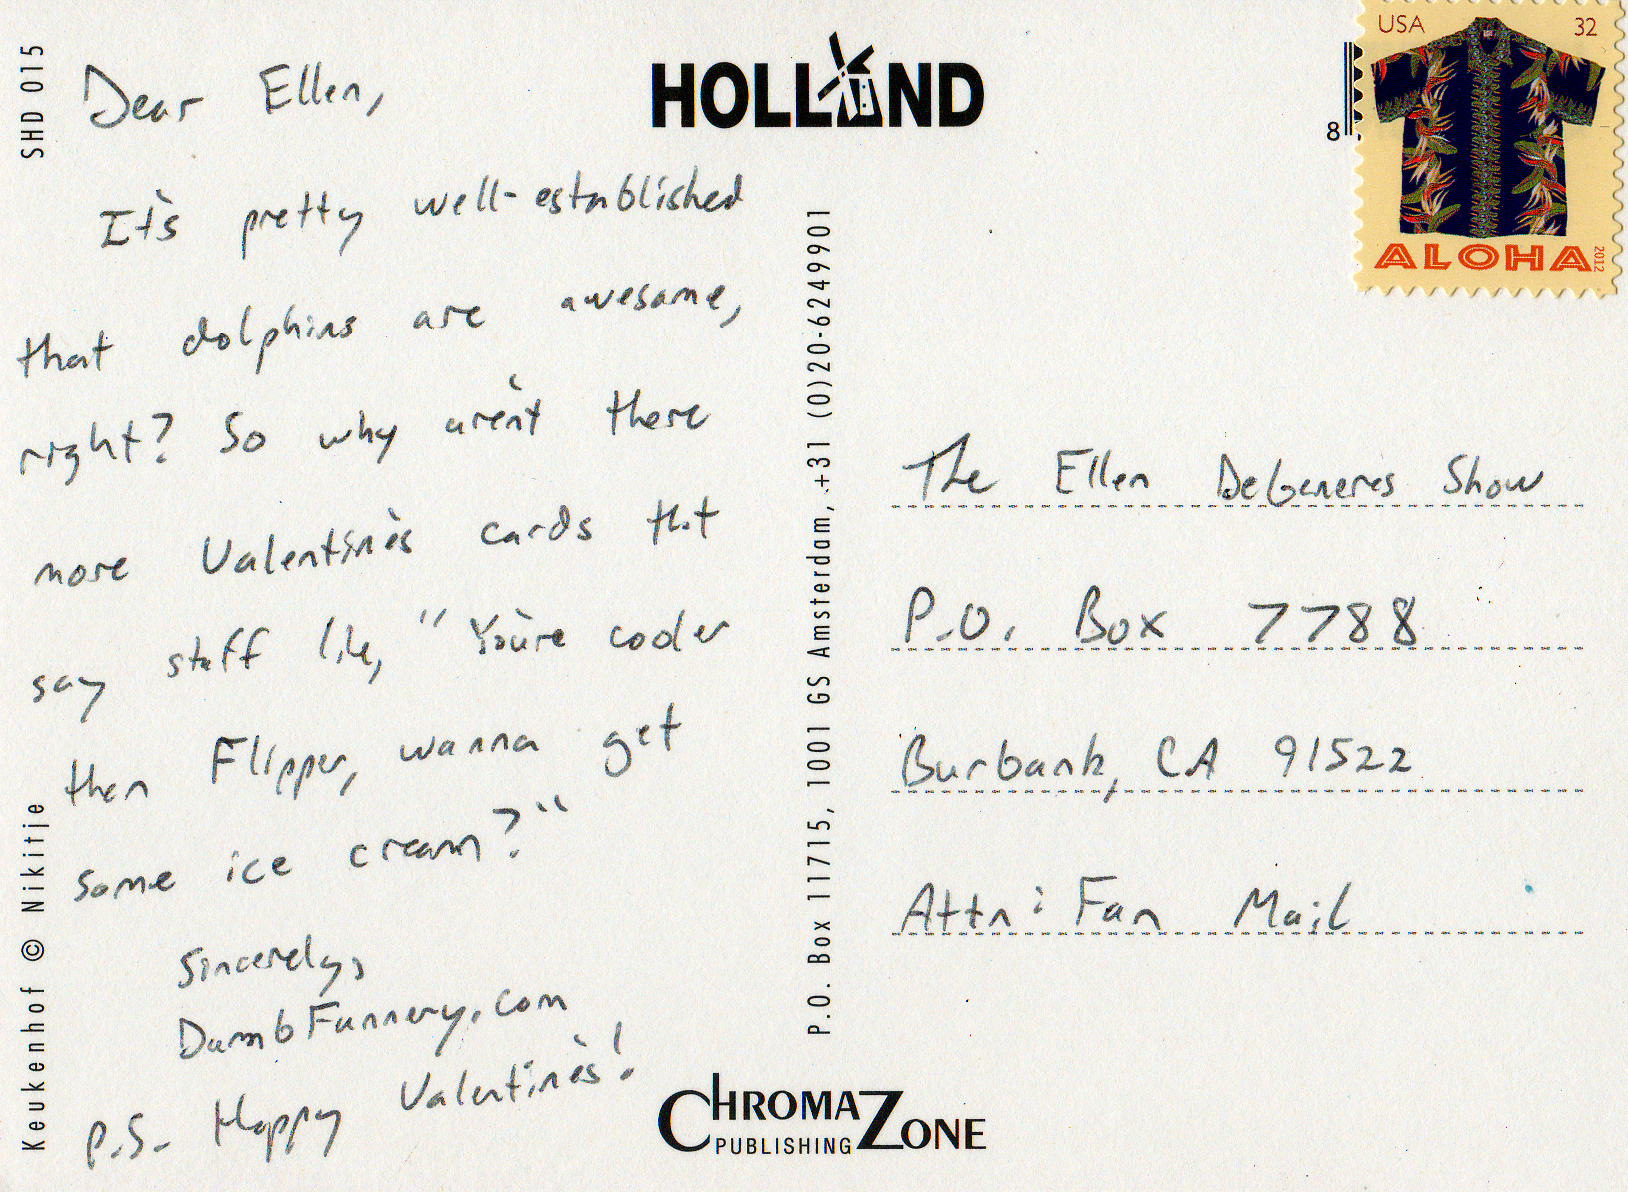 SHD 015
Dear Ellen,
It's pretty well-established
that dolphins are awesome,
right? So why aren't there
more Valentine's cards that
say stuff like, "You're cooler
then Flipper, wanna get
some ice cream?"
Sincerely,
DumbFunnery.com
P.S. Happy Valentine's!
Keukenhof © Nikitje
HOLLAND
P.O. Box 11715, 1001 GS Amsterdam, +31 (0)20-6249901
CHROMAZONE
PUBLISHING
8
USA 32
ALOHA
2012
The Ellen DeGeneres Show
P.O. Box 7788
Burbank, CA 91522
Attn: Fan Mail